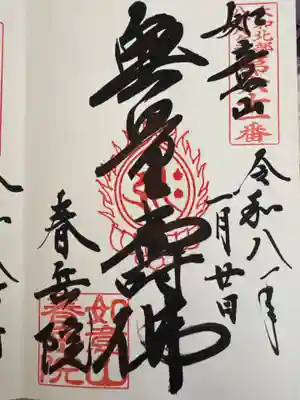 如意山
令和八年
一月廿日
無量壽佛
春岳院
如意山
春岳院